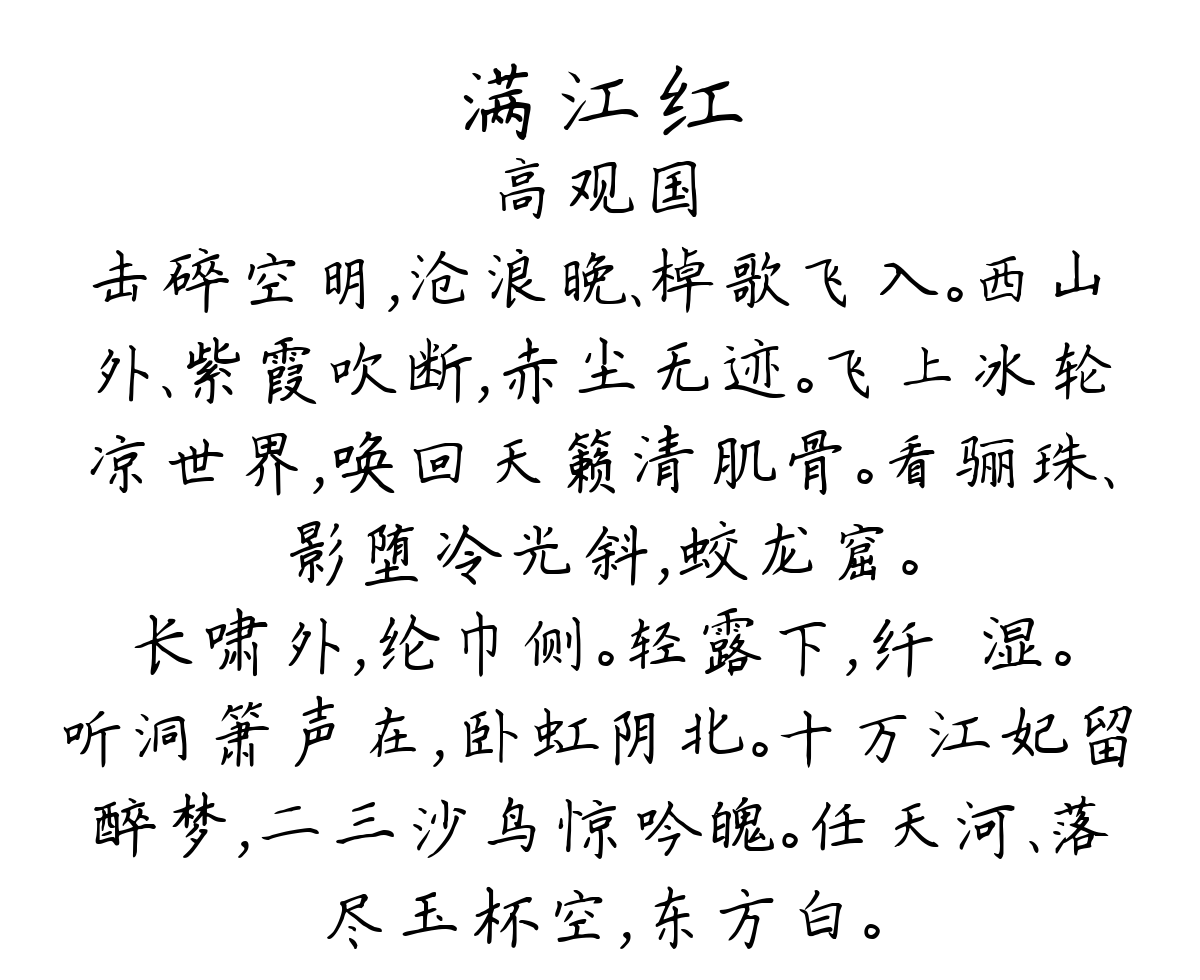 满江红
高观国
击碎空明,沧浪晚、棹歌飞入。西山
外、紫霞吹断,赤尘无迹。飞上冰轮
凉世界,唤回天籁清肌骨。看骊珠、
影堕冷光斜,蛟龙窟。
长啸外,纶巾侧。轻露下,纤 湿。
听洞箫声在,卧虹阴北。十万江妃留
醉梦,二三沙鸟惊吟魄。任天河、落
尽玉杯空,东方白。